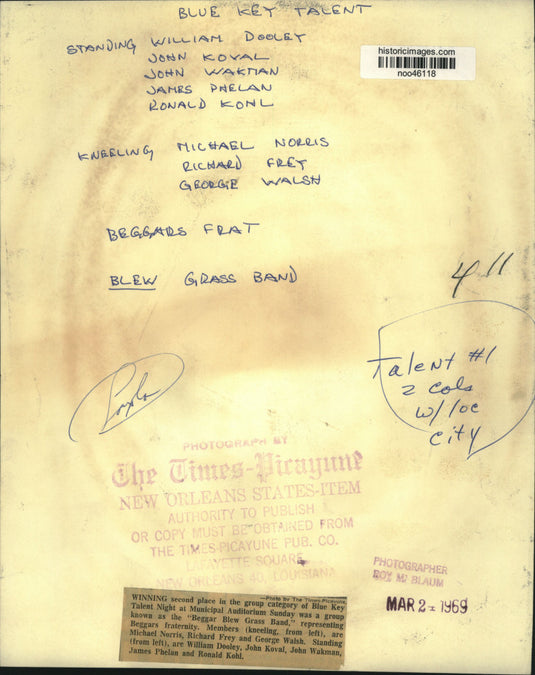 BLUE KEY TALENT
STANDING WILLIAM DOOLEY
JOHN KOVAL
JOHN WAKMAN
JAMES PHELAN
RONALD KOHL
historicimages.com
noo46118
KNEELING MICHAEL NORRIS
RICHARD FREY
GEORGE WALSH
BEGGARS FRAT
BLEW GRASS BAND
4 11
Talent #1
2 cols
w/loc
city
Loyola
PHOTOGRAPH BY
The Times-Picayune
NEW ORLEANS STATES-ITEM
AUTHORITY TO PUBLISH
OR COPY MUST BE OBTAINED FROM
THE TIMES-PICAYUNE PUB. CO.
LAFAYETTE SQUARE
NEW ORLEANS 40, LOUISIANA
PHOTOGRAPHER
ROY M. BLAUM
MAR 2 - 1969
—Photo by The Times-Picayune
WINNING second place in the group category of Blue Key
Talent Night at Municipal Auditorium Sunday was a group
known as the "Beggar Blew Grass Band," representing
Beggars fraternity. Members (kneeling, from left), are
Michael Norris, Richard Frey and George Walsh. Standing
(from left), are William Dooley, John Koval, John Wakman,
James Phelan and Ronald Kohl.